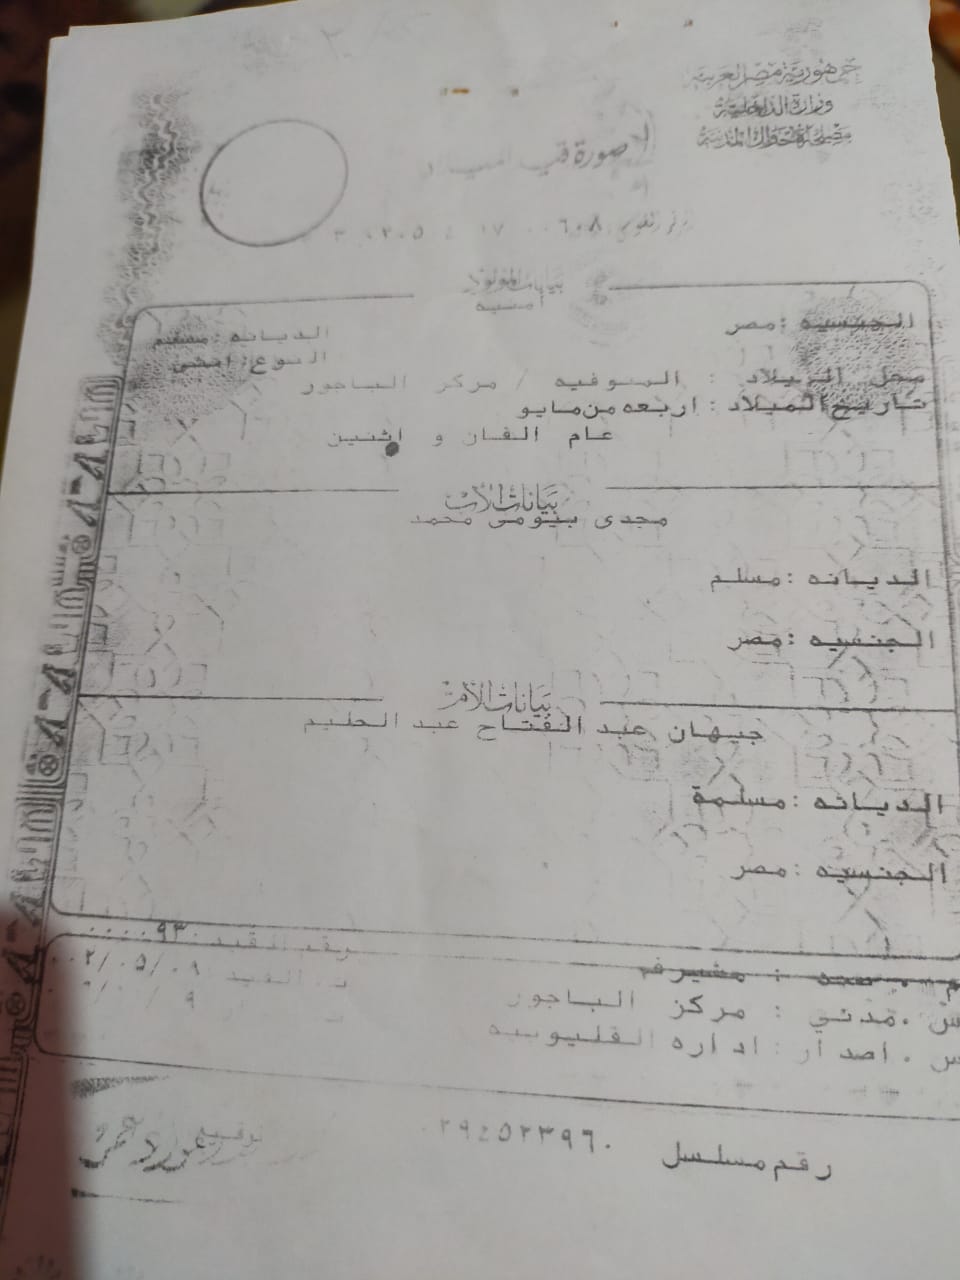 جمهورية مصر العربية
وزارة الداخلية
مصلحة الأحوال المدنية
صورة قيد
بيانات المولود
أمنيه
الجنسيه : مصر
الديانه : مسلم
النوع : انثى
محل الميلاد : المنوفيه / مركز الباجور
تاريخ الميلاد : اربعه من مايو
عام الفان و اثنين
بيانات الأب
مجدى بيومى محمد
الديانه : مسلم
الجنسيه : مصر
بيانات الأم
جيهان عبد الفتاح عبد الحليم
الديانه : مسلمة
الجنسيه : مصر
رقم القيد
م . صحه : مشيرف
ت. القيد
س . مدني : مركز الباجور
س . اصدار : اداره القليوبيه
رقم مسلسل ٢٩٤٥٢٣٩٦٠